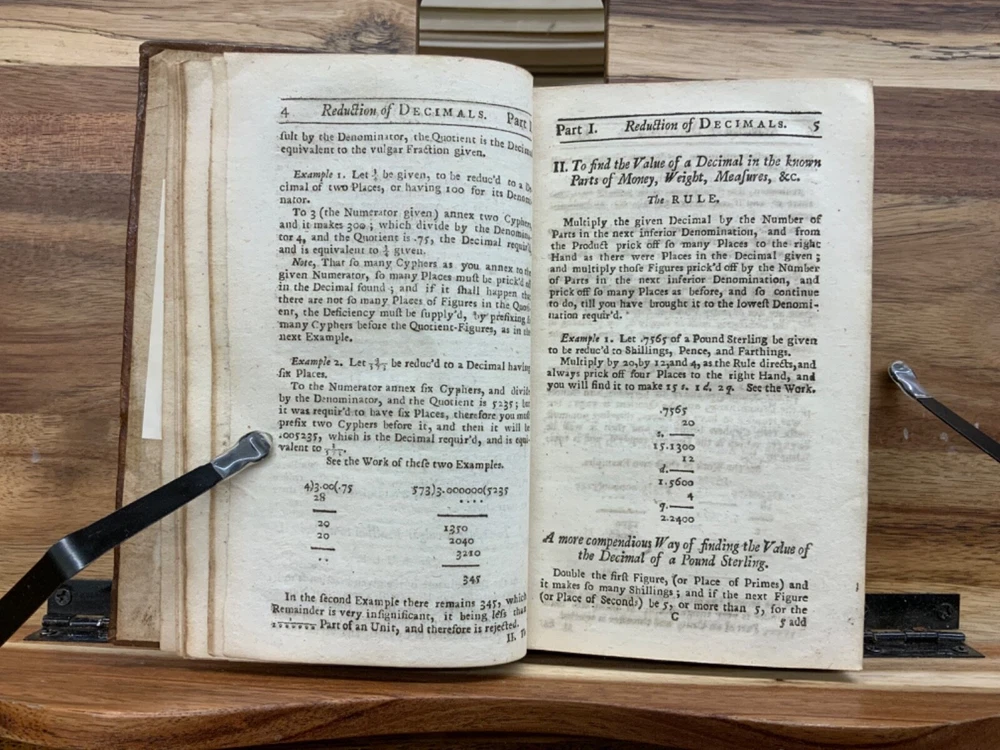 4 Reduction of DECIMALS. Part I
sult by the Denominator, the Quotient is the Decim
equivalent to the vulgar Fraction given.
Example 1. Let be given, to be reduc'd to a De
cimal of two Places, or having 100 for its Denom
nator.
To 3 (the Numerator given) annex two Cyphers,
and it makes 300; which divide by the Denomina
tor 4, and the Quotient is .75, the Decimal requir'd
and is equivalent to ¾ given.
Note, That so many Cyphers as you annex to the
given Numerator, so many Places must be prick'd of
in the Decimal found; and if it shall happen that
there are not so many Places of Figures in the Quoti
ent, the Deficiency must be supply'd, by prefixing so
many Cyphers before the Quotient-Figures, as in the
next Example.
Example 2. Let be reduc'd to a Decimal having
six Places.
To the Numerator annex six Cyphers, and divide
by the Denominator, and the Quotient is 5235; but
it was requir'd to have six Places, therefore you must
prefix two Cyphers before it, and then it will be
.005235, which is the Decimal requir'd, and is equi-
valent to
See the Work of these two Examples.
4)3.00(.75 573)3.000000(5235
28 ....
20 1350
20 2040
.. 3210
345
In the second Example there remains 345, which
Remainder is very insignificant, it being less than
Part of an Unit, and therefore is rejected.
II. To
Part I. Reduction of DECIMALS. 5
II. To find the Value of a Decimal in the known
Parts of Money, Weight, Measures, &c.
The RULE.
Multiply the given Decimal by the Number of
Parts in the next inferior Denomination, and from
the Product prick off so many Places to the right
Hand as there were Places in the Decimal given;
and multiply those Figures prick'd off by the Number
of Parts in the next inferior Denomination, and
prick off so many Places as before, and so continue
to do, till you have brought it to the lowest Denomi-
nation requir'd.
Example 1. Let .7565 of a Pound Sterling be given
to be reduc'd to Shillings, Pence, and Farthings.
Multiply by 20, by 12, and 4, as the Rule directs, and
always prick off four Places to the right Hand, and
you will find it to make 15 s. 1 d. 2 q. See the Work.
.7565
20
s.
15.1300
12
d.
1.5600
4
q.
2.2400
A more compendious Way of finding the Value of
the Decimal of a Pound Sterling.
Double the first Figure, (or Place of Primes) and
it makes so many Shillings; and if the next Figure
(or Place of Seconds) be 5, or more than 5, for the
C 5 add